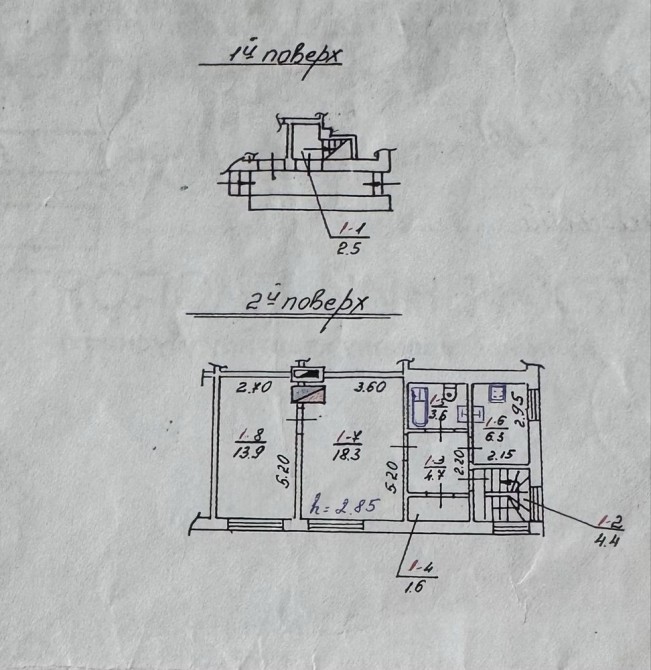 1й поверх
1-1
2.5
2й поверх
2.70
3.60
1-5
3.6
1-6
6.3
2.95
2.15
1-8
13.9
5.20
1-7
18.3
5.20
1-3
4.7
2.20
h=2.85
1-2
4.4
1-4
1.6